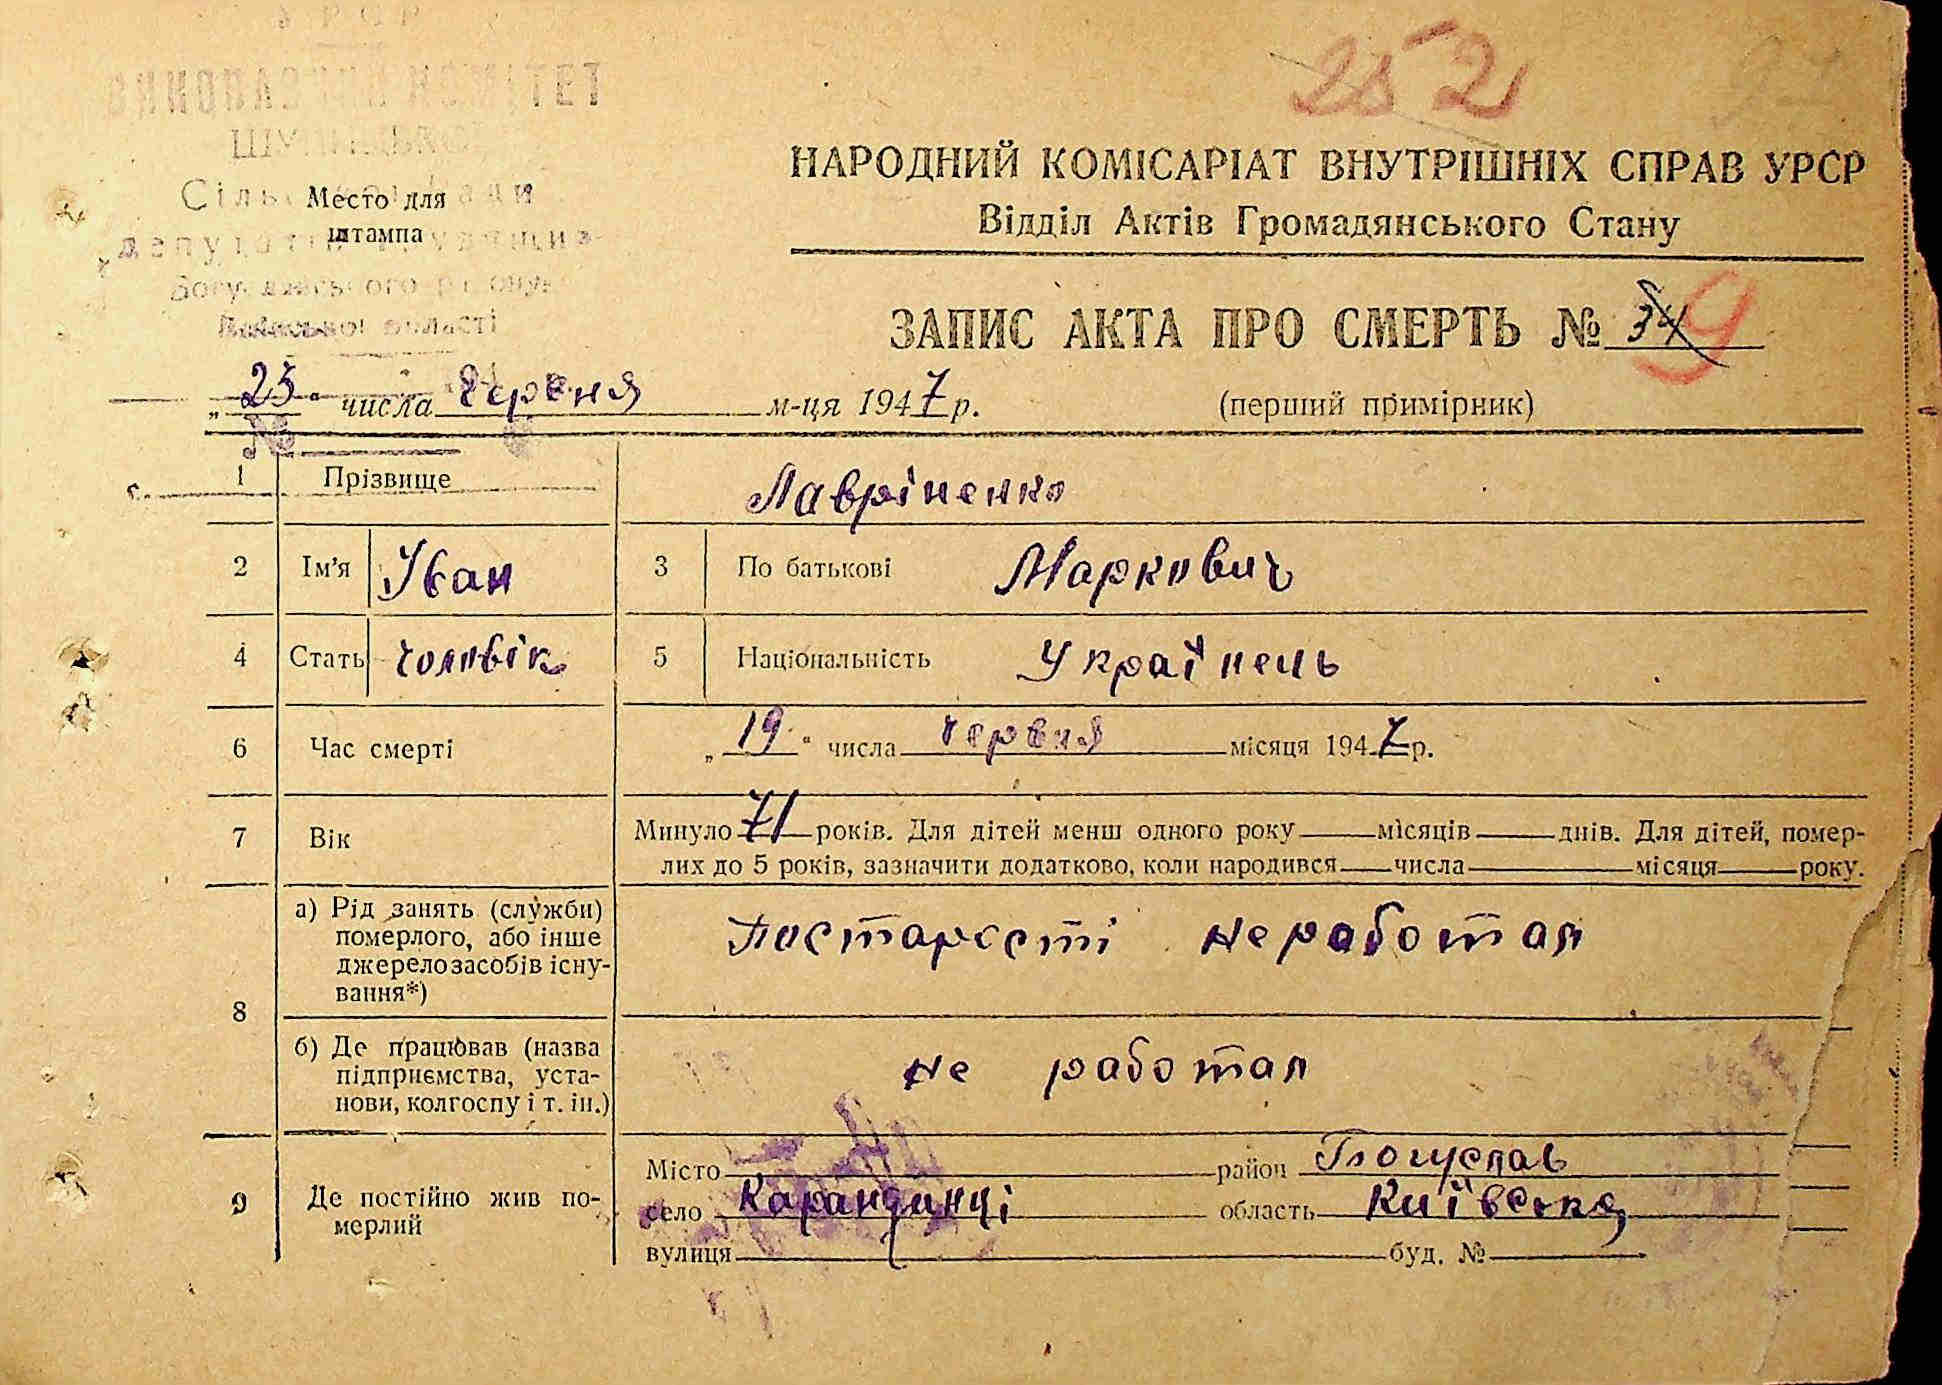 252
УРСР
ВИКОНАВЧИЙ КОМІТЕТ
Сільської Ради
Место для
штампа
депутатів трудящих
Богуславського району
Київської області
НАРОДНИЙ КОМІСАРІАТ ВНУТРІШНІХ СПРАВ УРСР
Відділ Актів Громадянського Стану
ЗАПИС АКТА ПРО СМЕРТЬ № 34 9
„23“ числа червня м-ця 1947 р.
(перший примірник)
№
1 Прізвище Лавріненко
2 Ім’я Іван 3 По батькові Маркович
4 Стать чоловік 5 Національність Українець
6 Час смерті „19“ числа червня місяця 1947 р.
7 Вік Минуло 71 років. Для дітей менш одного року місяців днів. Для дітей, помер-
лих до 5 років, зазначити додатково, коли народився числа місяця року.
8 а) Рід занять (служби)
померлого, або інше
джерело засобів існу-
вання*)
Постарості неработал
б) Де працював (назва
підприємства, уста-
нови, колгоспу і т. ін.)
не работал
9 Де постійно жив по-
мерлий
Місто район Богуслав
село Карандинці область Київська
вулиця буд. №